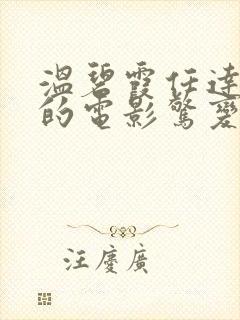 溫碧霞任達
的電影驚變
汪慶廣